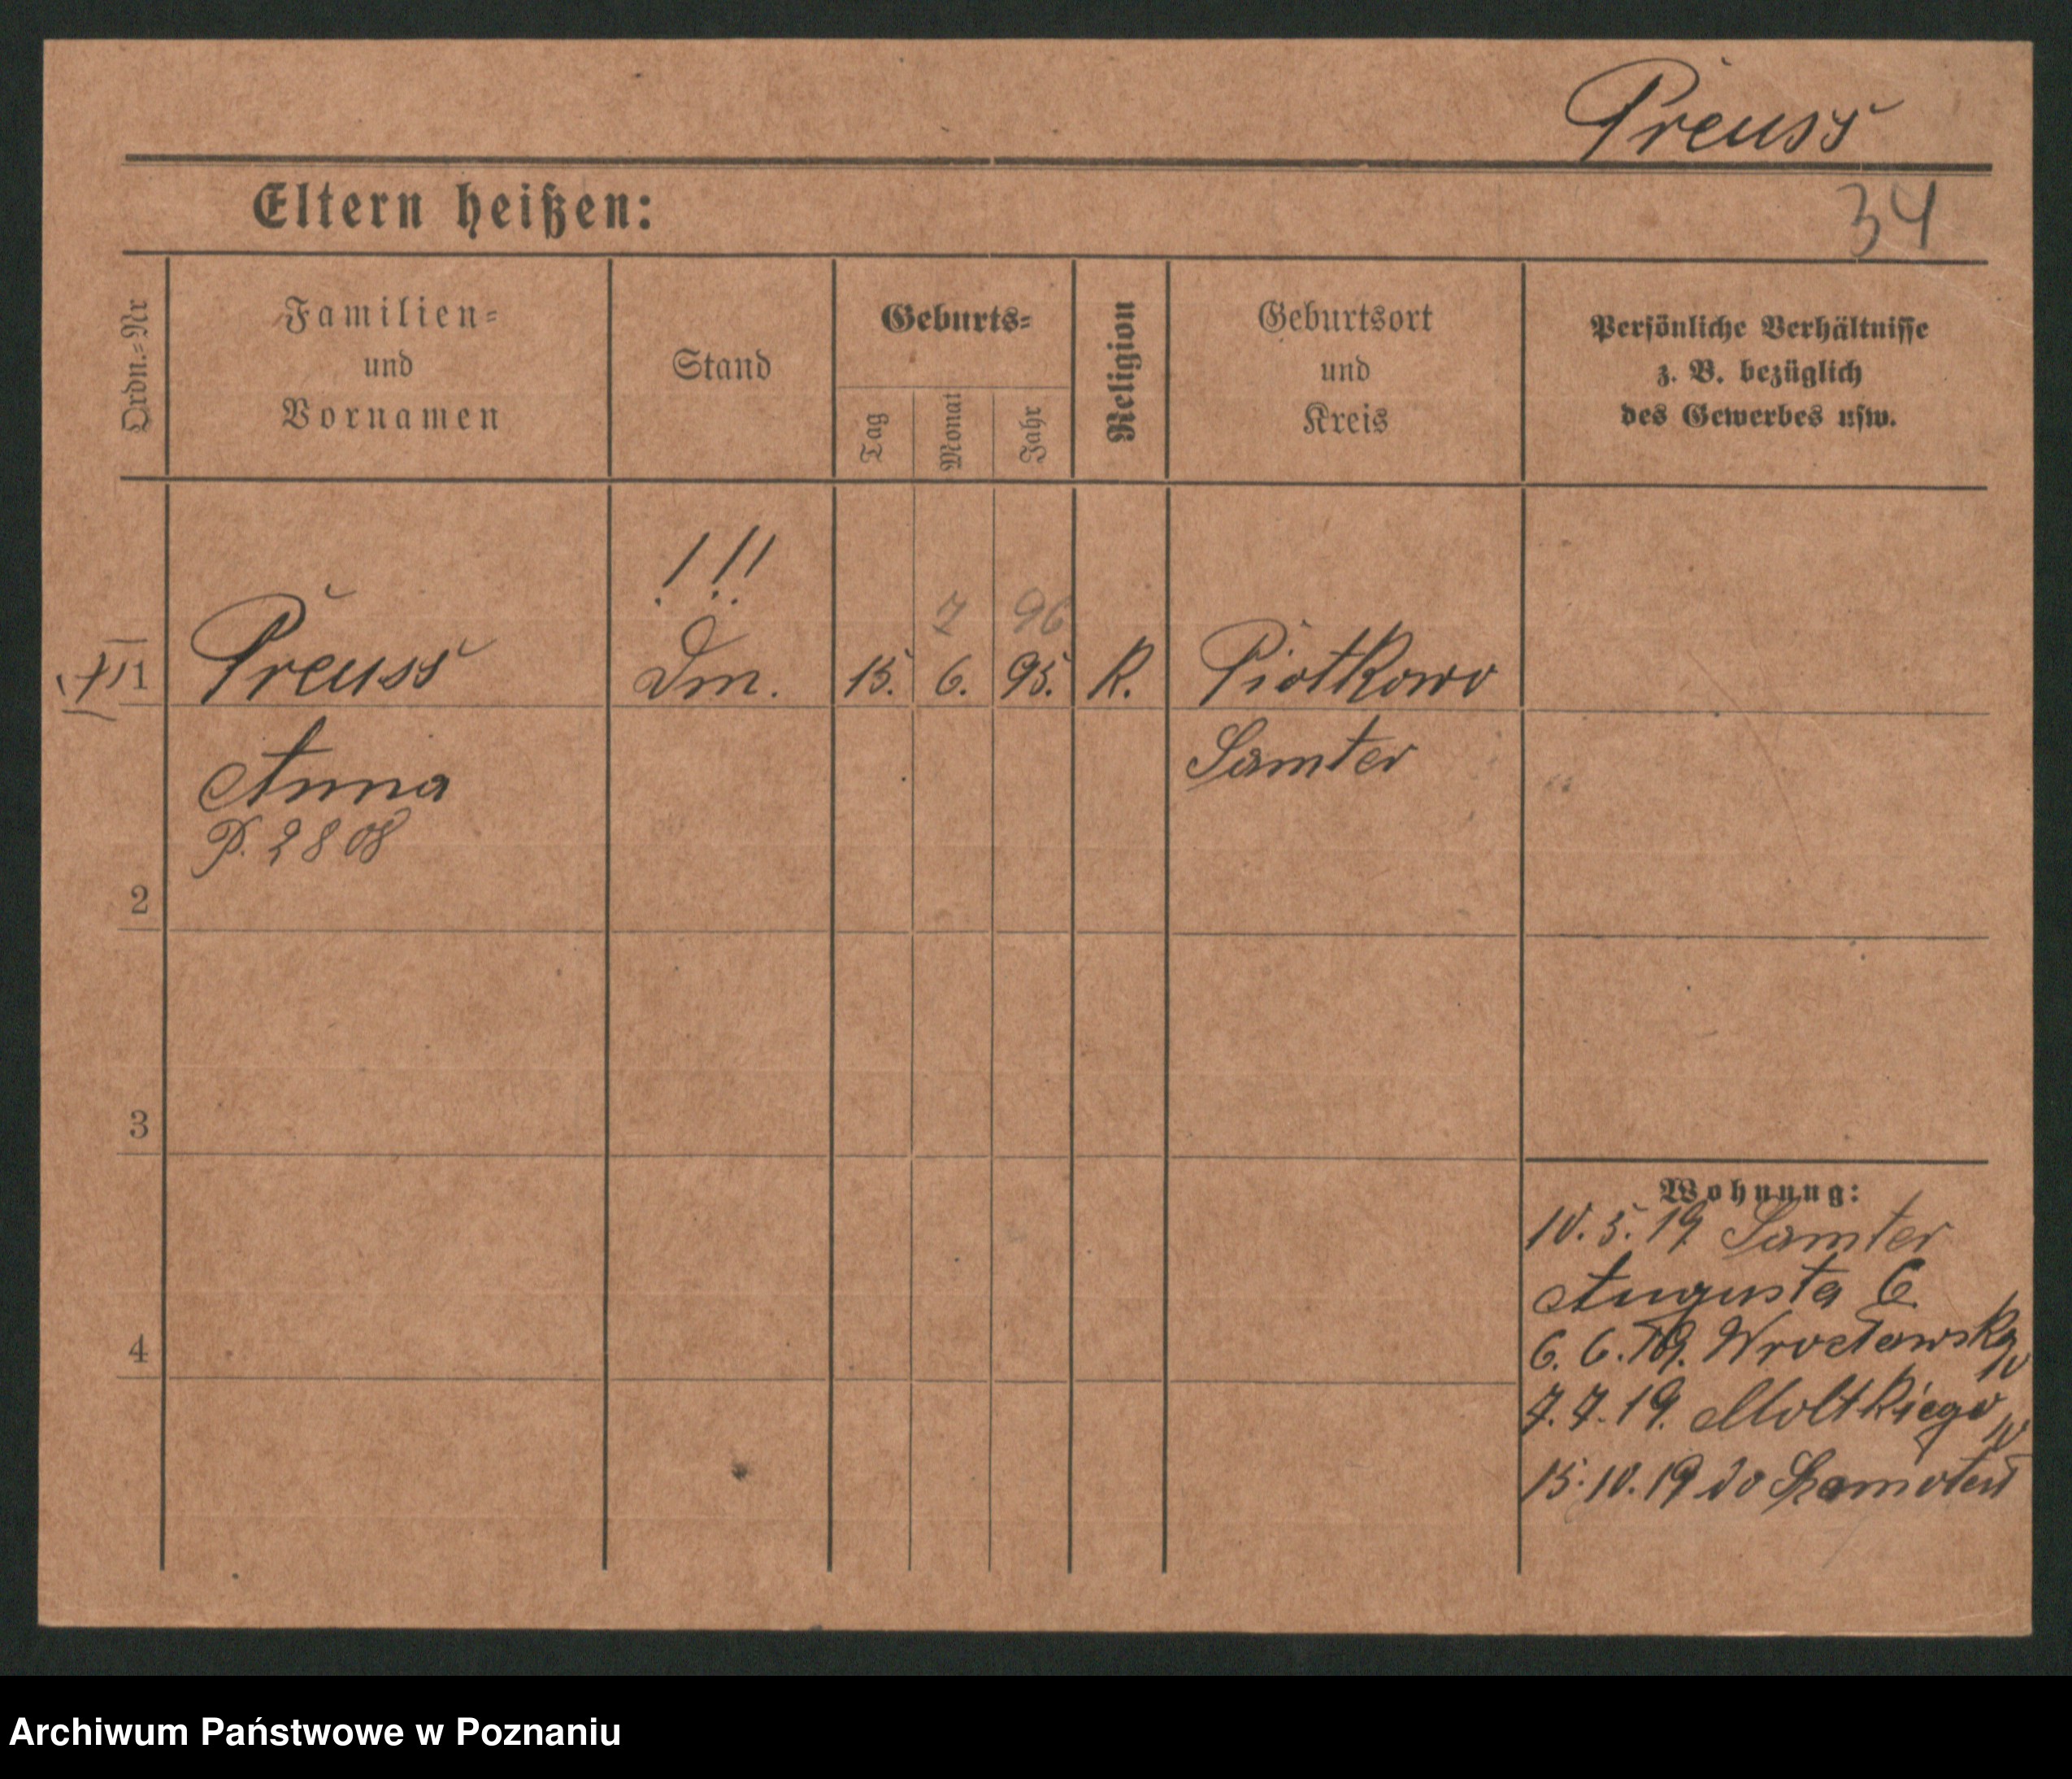 Preuss
Eltern heißen:
34
Ordn.=Nr
Familien=
und
Vornamen
Stand
Geburts=
Tag
Monat
Jahr
Religion
Geburtsort
und
Kreis
Persönliche Verhältnisse
z. B. bezüglich
des Gewerbes usw.
! ! !
7 96
1 Preuss Dm. 15. 6. 95. R. Piotkowo
Anna Samter
P. 2808
2
3
4
Wohnung:
10. 5. 19 Samter
Augusta 6
6. 6. 19. Wrocławska
7. 7. 19. Moltkiego
15. 10. 19 do Szamotuł
Archiwum Państwowe w Poznaniu